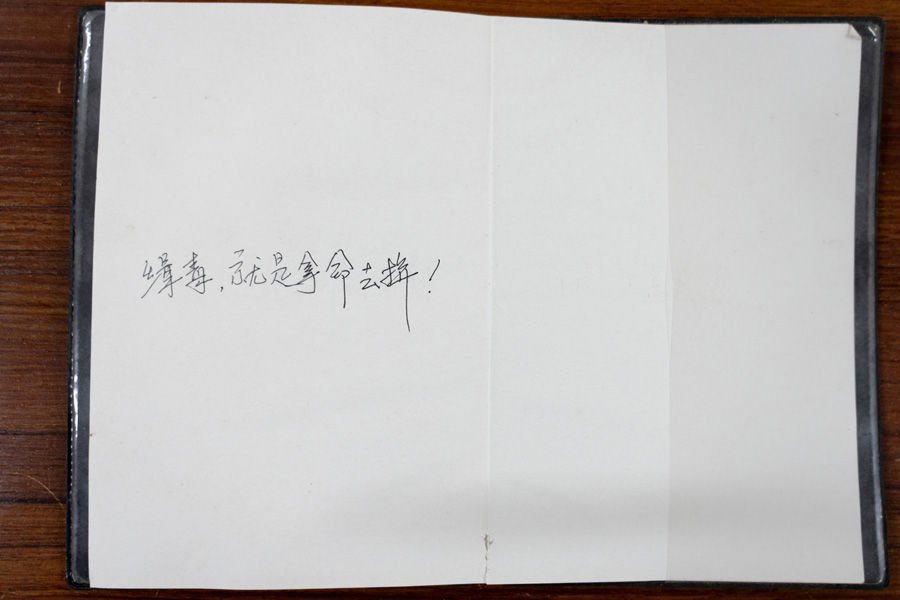 缉毒,就是拿命去拼!